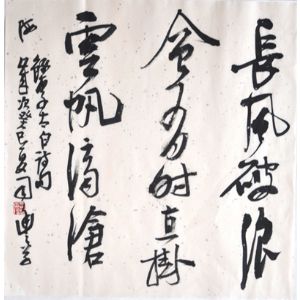 長風破浪
會有时直掛
雲帆濟滄
海
李太白詩句
癸巳夏月